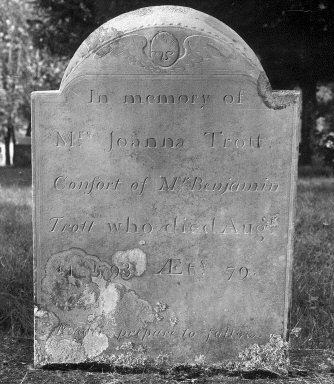 In memory of
Mrs Joanna Trott
Consort of Mr Benjamin
Trott who died Augst
1793 Æts 79
prepare to follow